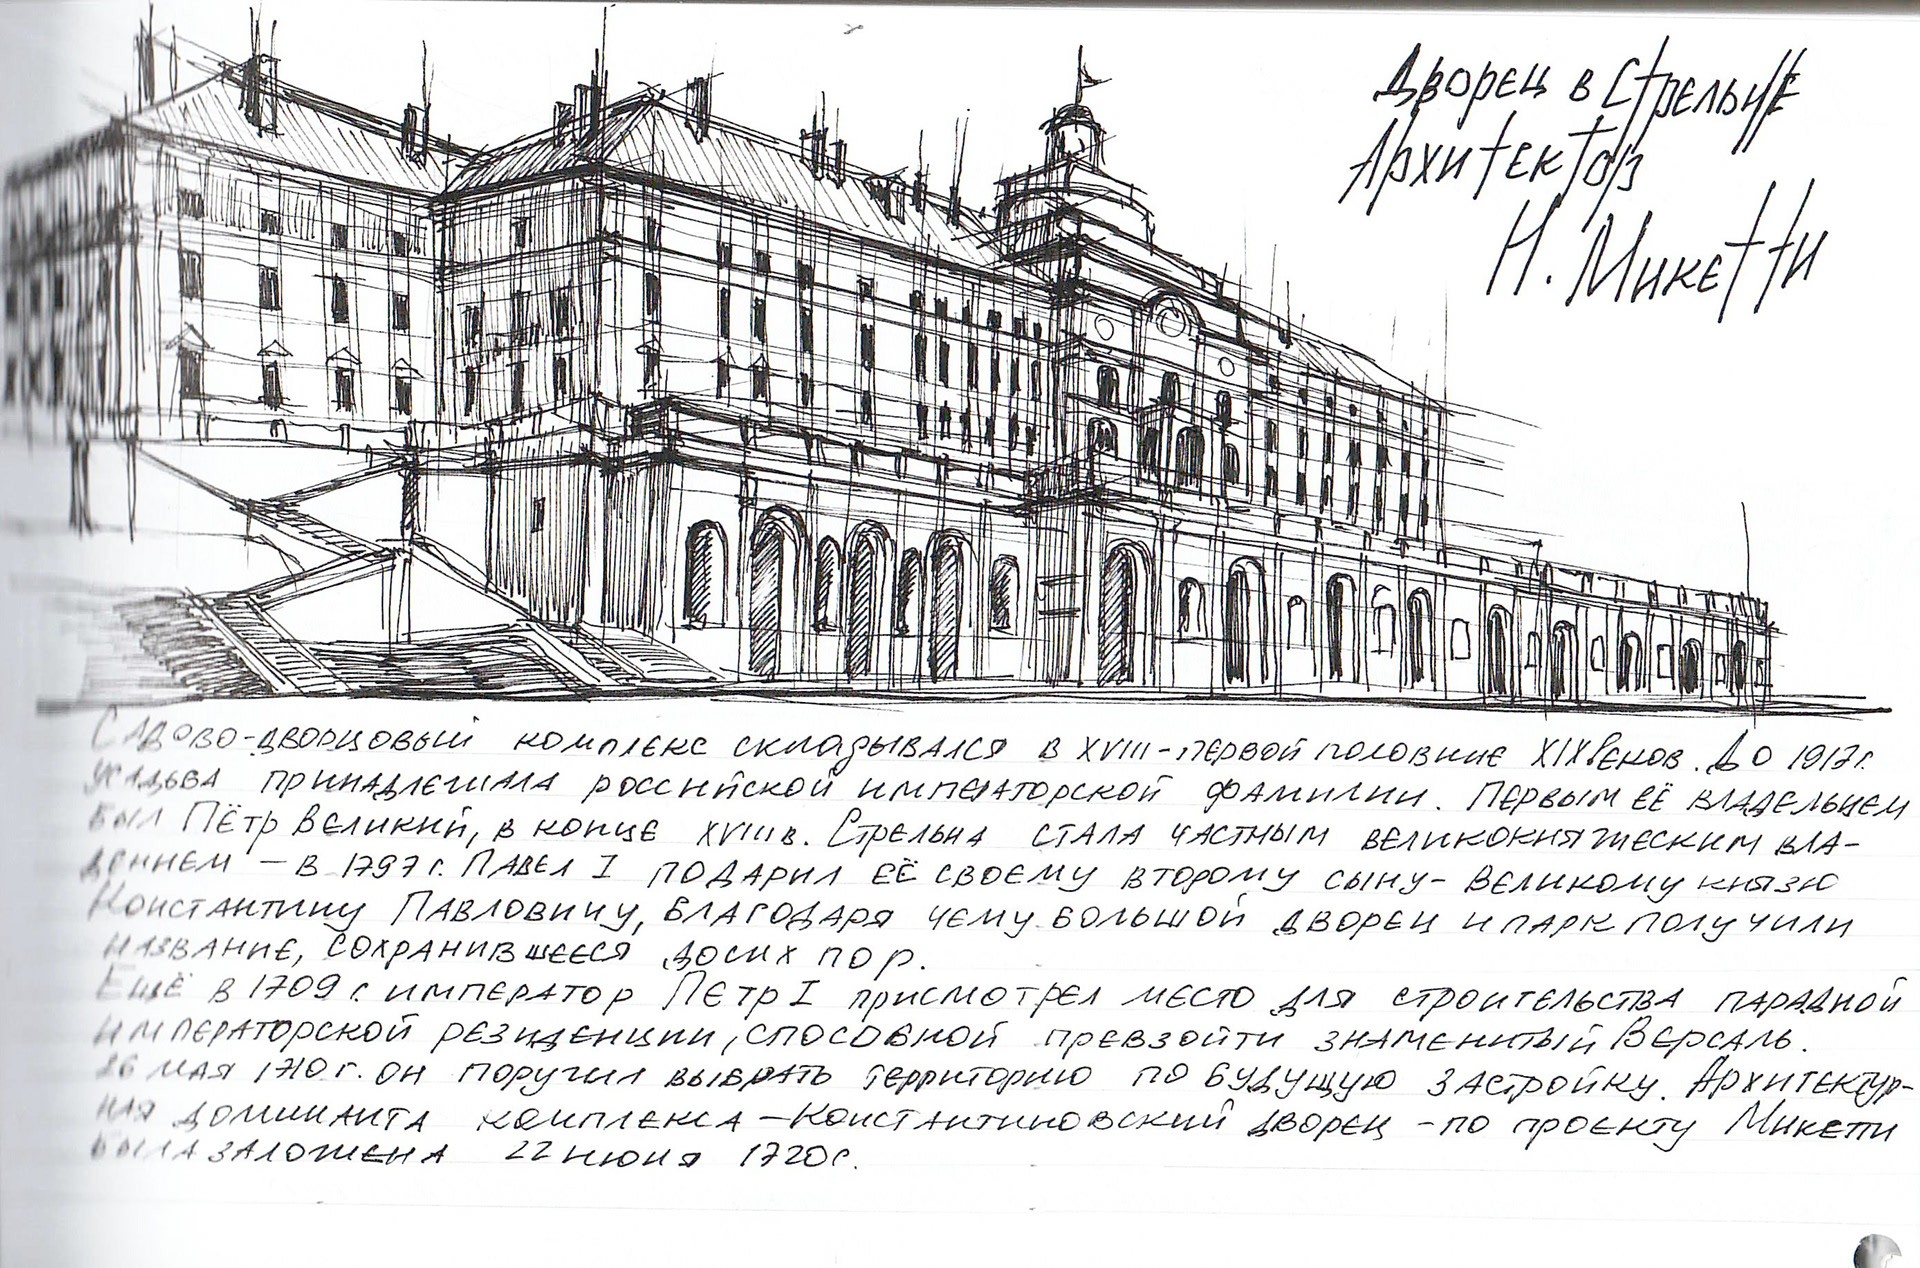 Дворец в Стрельне
Архитектор
Н. Микетти
Садово-дворцовый комплекс складывался в XVIII-первой половине XIX веков. До 1917г.
усадьба принадлежала российской императорской фамилии. Первым её владельцем
был Пётр Великий, в конце XVIII в. Стрельна стала частным великокняжеским вла-
дением — в 1797 г. Павел I подарил её своему второму сыну - Великому князю
Константину Павловичу, благодаря чему большой дворец и парк получили
название, сохранившееся до сих пор.
Ещё в 1709 г. император Пётр I присмотрел место для строительства парадной
императорской резиденции, способной превзойти знаменитый Версаль.
26 мая 1710 г. он поручил выбрать территорию по будущую застройку. Архитектур-
ная доминанта комплекса — Константиновский дворец - по проекту Микетти
была заложена 22 июня 1720 г.